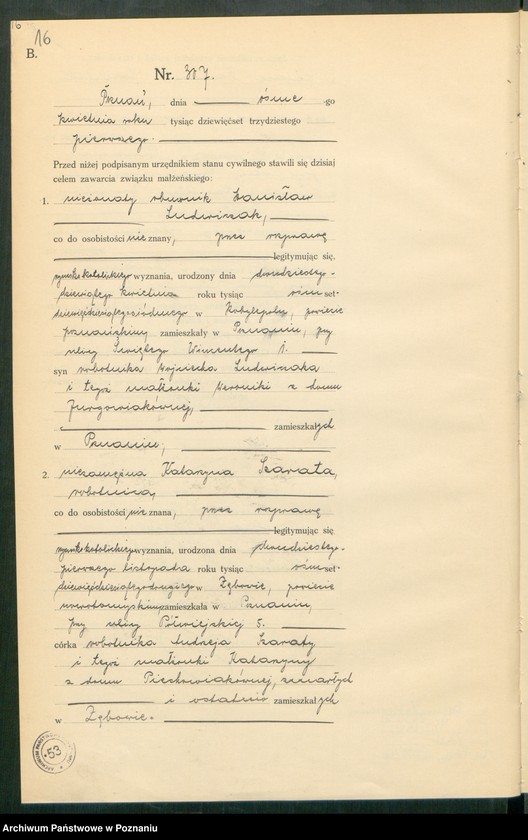 16
16
B.
Nr. 307.
Poznań, dnia ósme go
kwietnia roku tysiąc dziewięćset trzydziestego
pierwszego.
Przed niżej podpisanym urzędnikiem stanu cywilnego stawili się dzisiaj
celem zawarcia związku małżeńskiego:
1. nieżonaty obuwnik Stanisław
Ludwiczak,
co do osobistości nie znany, przez rozprawę
legitymując się,
rzymsko katolickiego wyznania, urodzony dnia dwudziestego-
dziewiątego kwietnia roku tysiąc ośm set-
dziewięćdziesiątego siódmego w Kobylepole, powiecie
poznańskim zamieszkały w Poznaniu, przy
ulicy Świętego Wincentego 1.
syn robotnika Wojciecha Ludwiczaka
i tegoż małżonki Weroniki z domu
zamieszkałych
w Poznaniu,
2. niezamężna Katarzyna Szarata,
robotnica,
co do osobistości nie znana, przez rozprawę
legitymując się
rzymsko katolickiego wyznania, urodzona dnia dwudziestego-
pierwszego listopada roku tysiąc ośm set-
dziewięćdziesiątego drugiego w Zębowie, powiecie
nowotomyskim zamieszkała w Poznaniu,
przy ulicy Półwiejskiej 5.
córka robotnika Andrzeja Szaraty
i tegoż małżonki Katarzyny
z domu Piechowiakównej, zmarłych
i ostatnio zamieszkałych
w Zębowie.
53
Archiwum Państwowe w Poznaniu